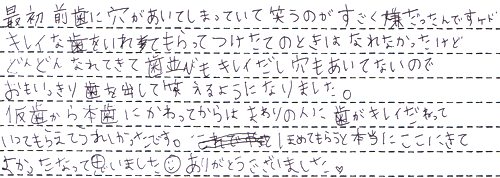 最初前歯に穴があいてしまっていて笑うのがすごく嫌だったんですけど
キレイな歯をいれてもらってつけたてのときはなれなかったけど
どんどんなれてきて歯並びもキレイだし穴もあいてないので
おもいっきり歯を出して笑えるようになりました。
仮歯から本歯にかわってからはまわりの人に歯がキレイだねって
いってもらえてうれしかったです。ほめてもらうと本当にここにきて
よかったなって思いました☺ありがとうございました♡